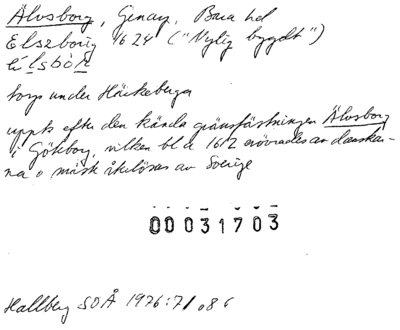 Älvsborg, Genarp, Bara hd
Elszborig 1624 ("Nylig bygdt")
torp under Häckeberga
uppk. efter den kända gränsfästningen Älvsborg
i Gökborg, vilken bl a 1612 erövrades av danskar-
na o måst återlösas av Sverige
00031703
Hallberg SOÅ 1976:7/ s 86